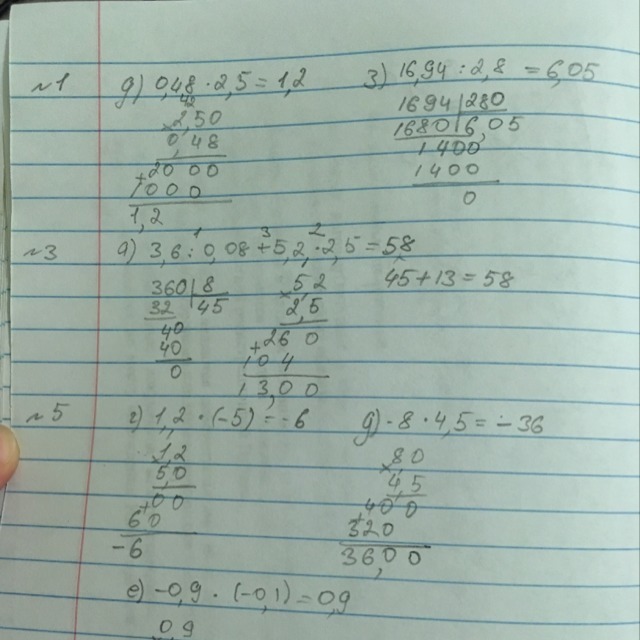 №1 д) 0,48 · 2,5 = 1,2 з) 16,94 : 2,8 = 6,05
× 2,50 1694 | 280
0,48 1680 | 6,05
+ 2000 1400
1000 1400
1,2 0
№3 а) 3,6 : 0,08 + 5,2 · 2,5 = 58
1 3 2
360 | 8 × 5 2 45 + 13 = 58
32 | 45 2,5
40 + 260
40 104
0 13,00
№5 г) 1,2 · (-5) = -6 д) -8 · 4,5 = -36
× 1,2 × 80
5,0 4,5
+ 00 + 400
60 320
-6 36,00
е) -0,9 · (-0,1) = 0,9
0,9